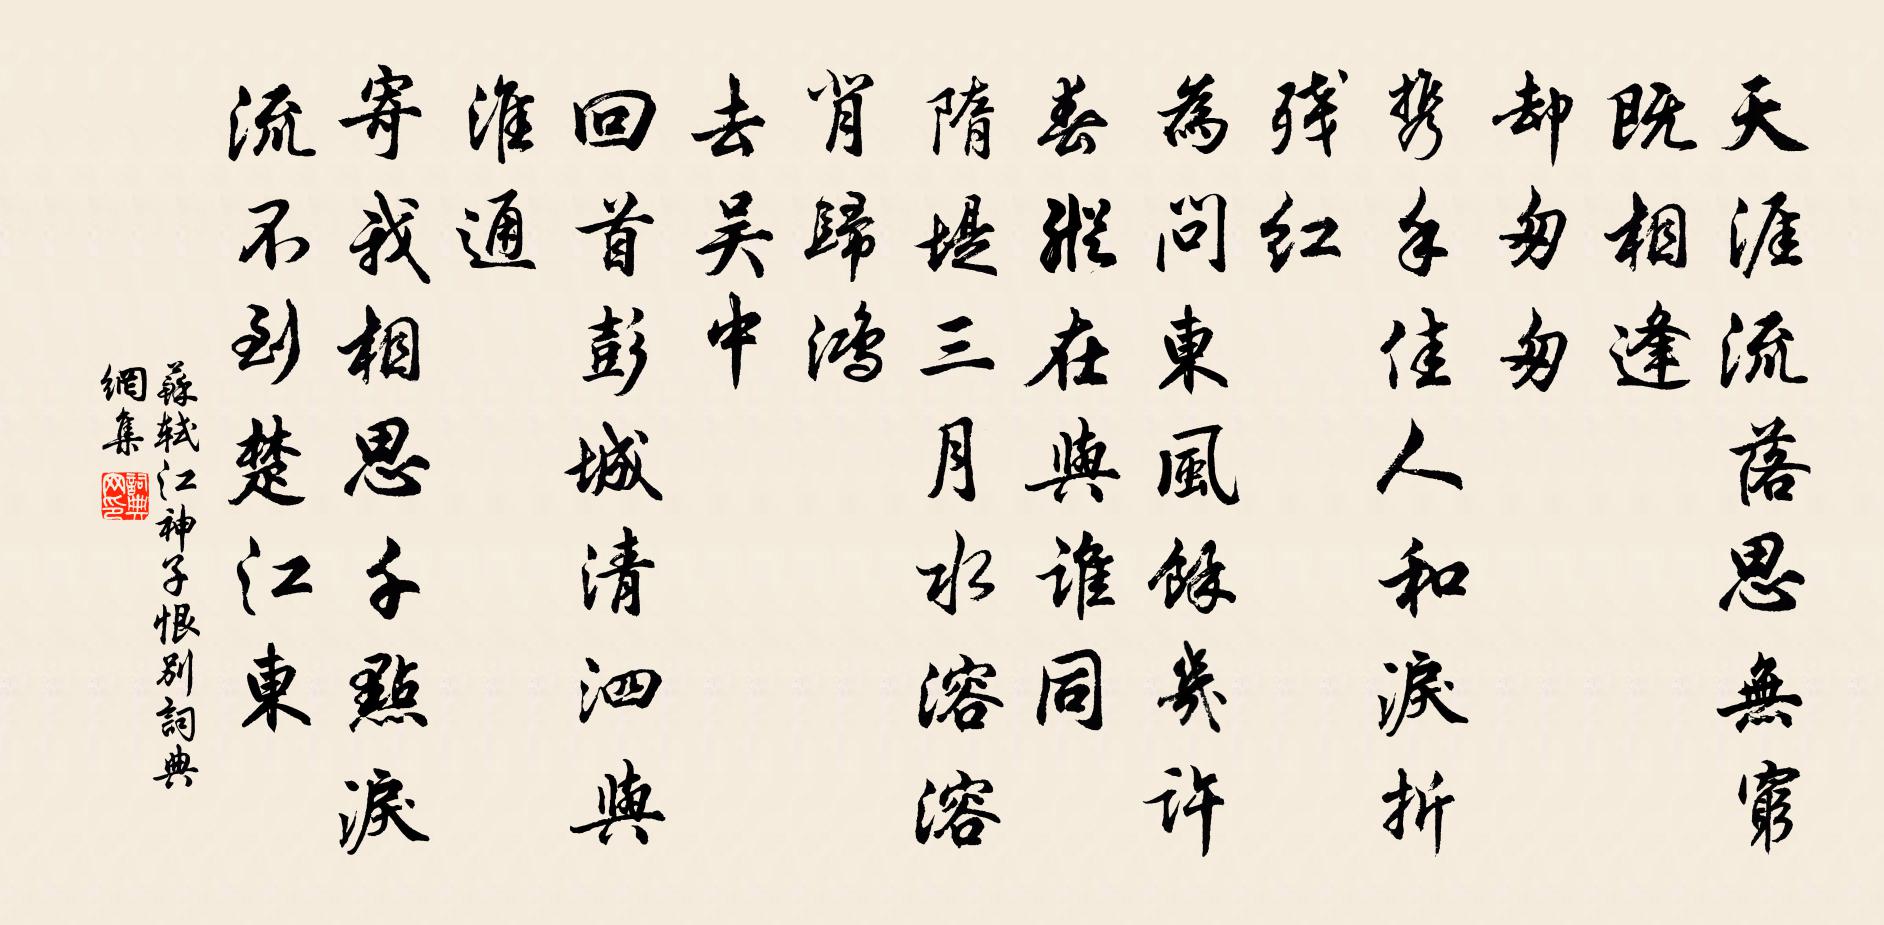 天涯流落思無窮
既相逢
却匆匆
携手佳人和淚折
残红
為問東風餘幾許
春縱在與誰同
隋堤三月水溶溶
背歸鴻
去吴中
回首彭城清泗與
淮通
寄我相思千點淚
流不到楚江東
蘇軾江神子恨别詞典
網集
詞典
网印